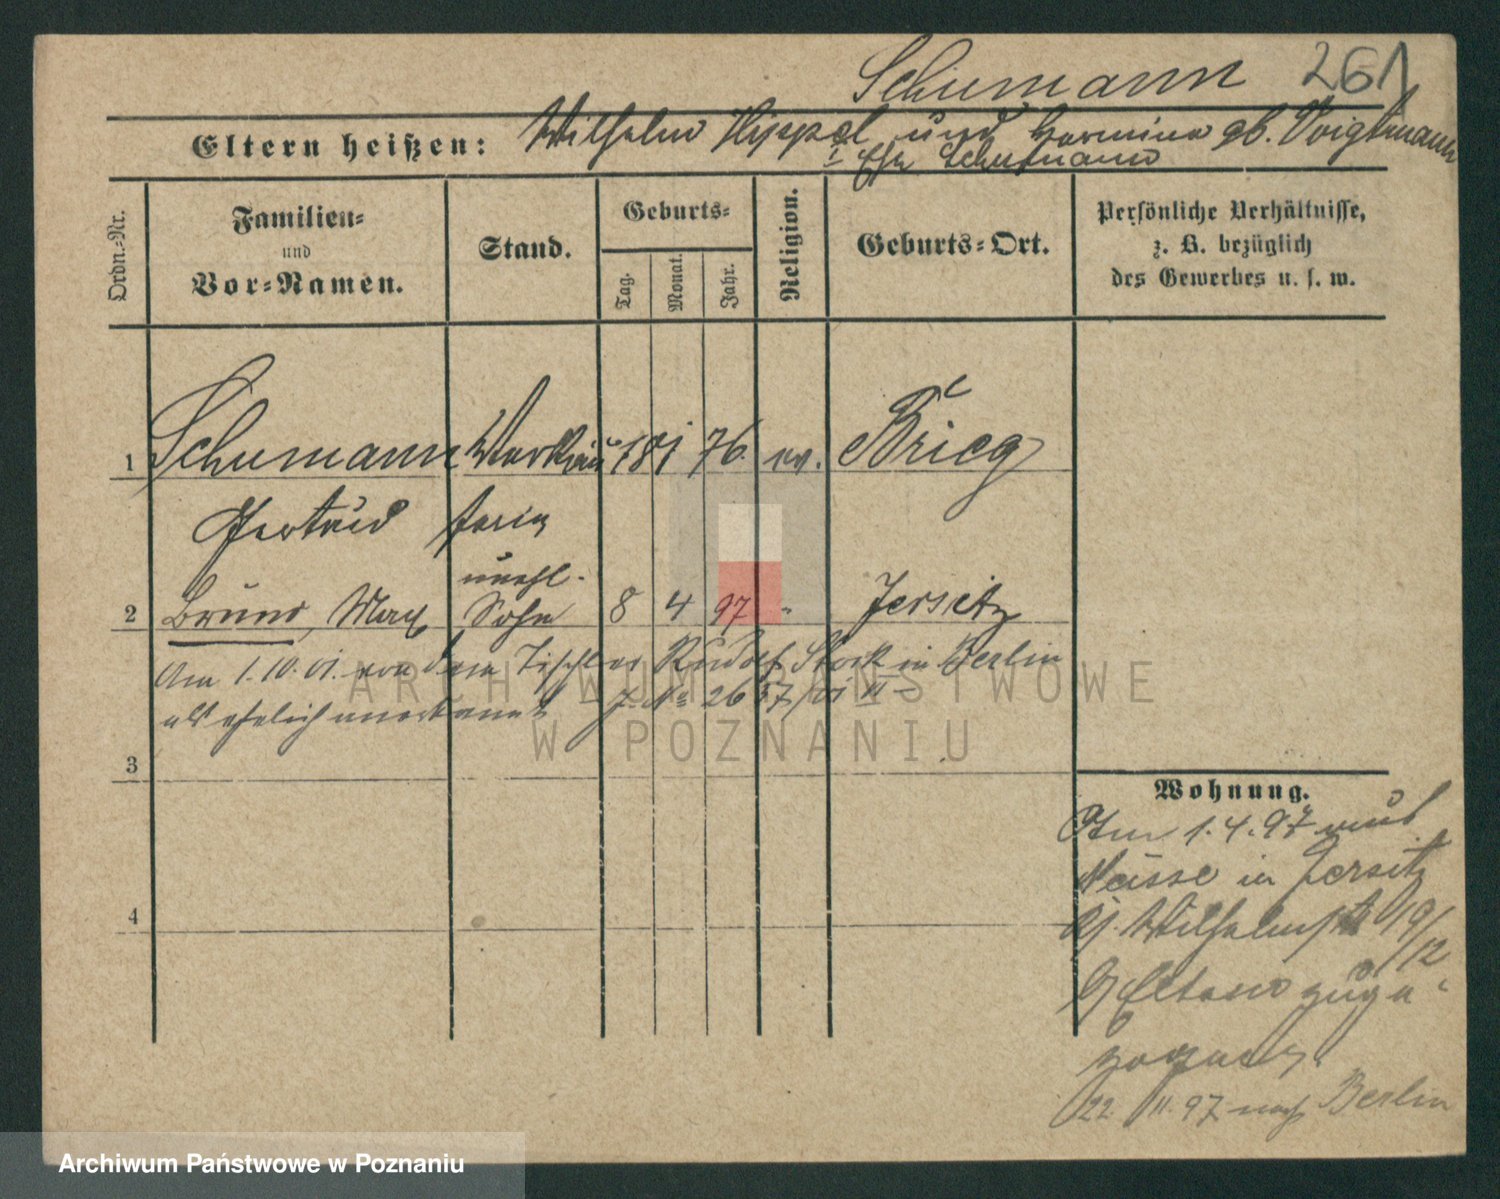 Schumann 261
Eltern heißen: Wilhelm Hippel und Hermine gb. Voigtmann
Ehe Schumann
Ordn.-Nr.
Familien-
und
Vor-Namen.
Stand.
Geburts-
Tag.
Monat.
Jahr.
Religion.
Geburts-Ort.
Persönliche Verhältnisse,
z. B. bezüglich
des Gewerbes u. s. w.
1 Schumann 18 1 76. ev. Brieg
Gertrud
unehl.
2 Bruno, Max Sohn 8 4 97 " Jersitz
Am 1.10.01. von dem Tischler Rudolf Stork in Berlin
als ehelich anerkannt J. No 2657/01 II
3
4
Wohnung.
Am 1.4.97 aus
Neisse in Jersitz
Wilhelmstr 19/12
Eltern zuge-
zogen.
22. 11. 97 nach Berlin
ARCHIWUM PAŃSTWOWE
W POZNANIU
Archiwum Państwowe w Poznaniu